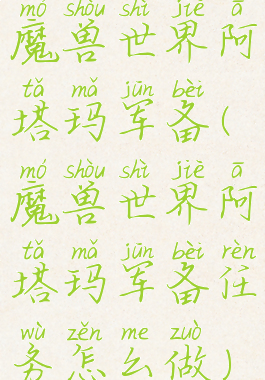 mó shòu shì jiè ā
魔兽世界阿
tǎ mǎ jūn bèi
塔玛军备(
mó shòu shì jiè ā
魔兽世界阿
tǎ mǎ jūn bèi rèn
塔玛军备任
wù zěn me zuò
务怎么做)